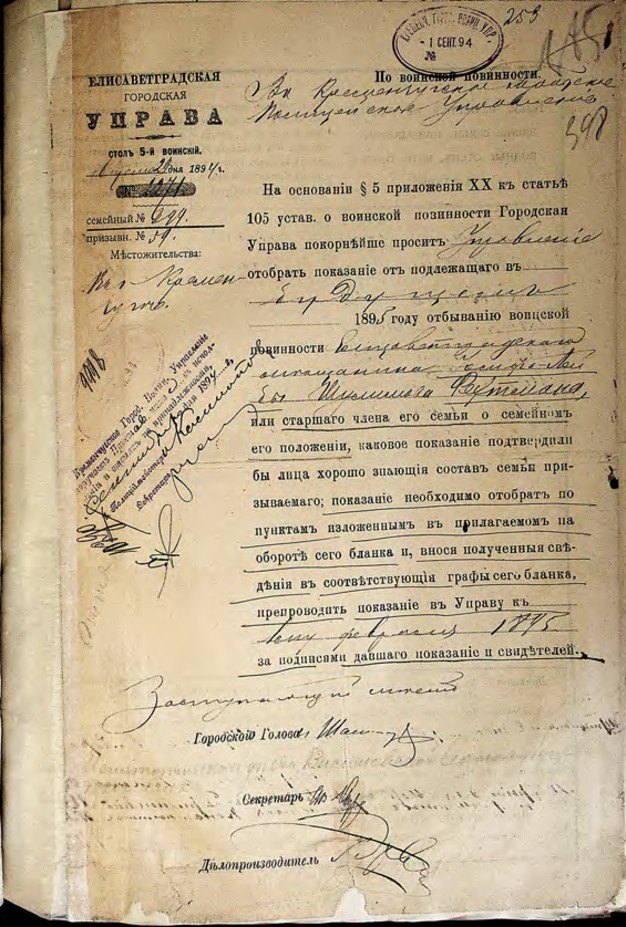 253
- 1 СЕНТ. 94 -
№
398
ЕЛИСАВЕТГРАДСКАЯ
ГОРОДСКАЯ
УПРАВА
СТОЛЪ 5-й ВОИНСКІЙ.
24 дня 1894 г.
№ 2271
СЕМЕЙНЫЙ № 299.
ПРИЗЫВН. № 59.
Мѣстожительства:
Въ г. Кремен-
чугѣ.
По воинской повинности.
Въ Кременчугское городское
Полицейское Управленіе
На основаніи § 5 приложенія XX къ статьѣ
105 устав. о воинской повинности Городская
Управа покорнѣйше проситъ Управленіе
отобрать показаніе отъ подлежащаго въ
будущемъ
1895 году отбыванію воинской
повинности Елисаветградскаго
мѣщанина Лей
бы Шулимова
или старшаго члена его семьи о семейномъ
его положеніи, каковое показаніе подтвердили
бы лица хорошо знающія составъ семьи при-
зываемаго; показаніе необходимо отобрать по
пунктамъ изложеннымъ въ прилагаемомъ на
оборотѣ сего бланка и, внося полученныя свѣ-
дѣнія въ соотвѣтствующія графы сего бланка,
препроводить показаніе въ Управу къ
февраля 1895
за подписями давшаго показаніе и свидѣтелей.
9098
Кременчугское Город. Полиц. Управленіе
Полиціймейстеръ
Секретарь
Заступающій мѣсто
Городского Головы
Секретарь
Дѣлопроизводитель